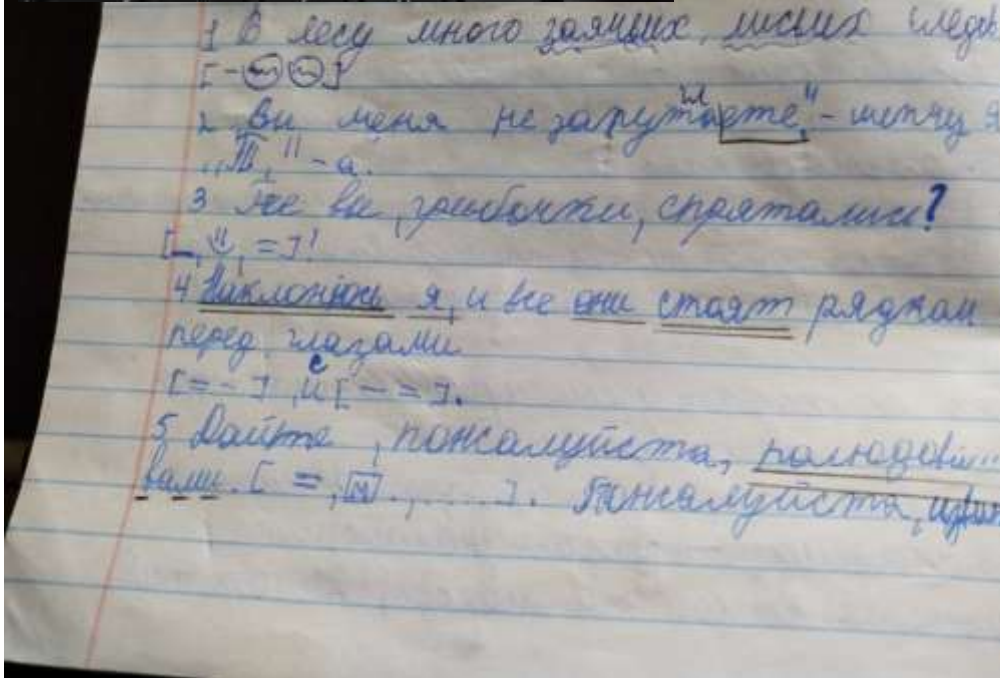 1 В лесу много заячьих, лисьих следов
[- ]
2 „Вы меня не запутаете," - шепчу я
„П," - а.
3 Где вы, грибочки, спрятались?
[-, , =]!
4 Наклонюсь я, и все они стоят рядком
перед глазами
[= -], и [- =].
5, Дайте, пожалуйста, полюбов
вами. [=, , ....]. Пожалуйста,